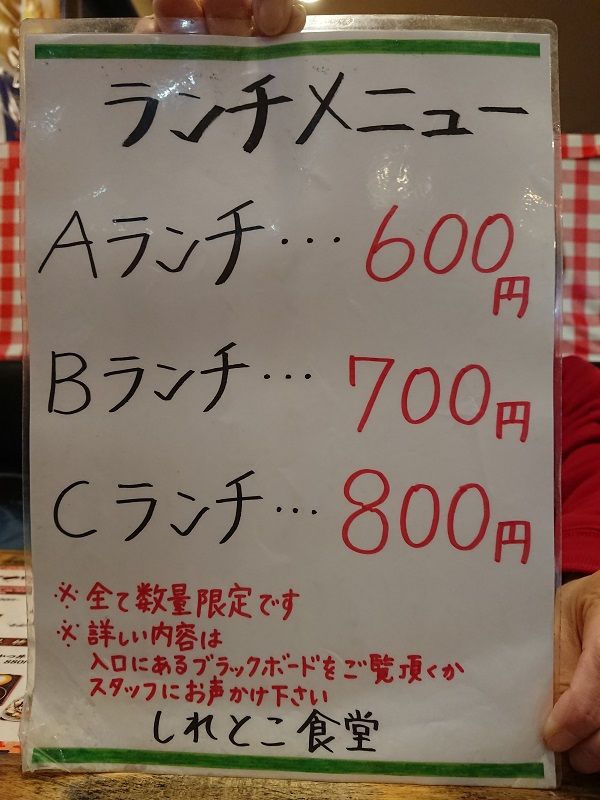 ランチメニュー
Aランチ… 600円
Bランチ… 700円
Cランチ… 800円
※ 全て数量限定です
※ 詳しい内容は
入口にあるブラックボードをご覧頂くか
スタッフにお声かけ下さい
しれとこ食堂